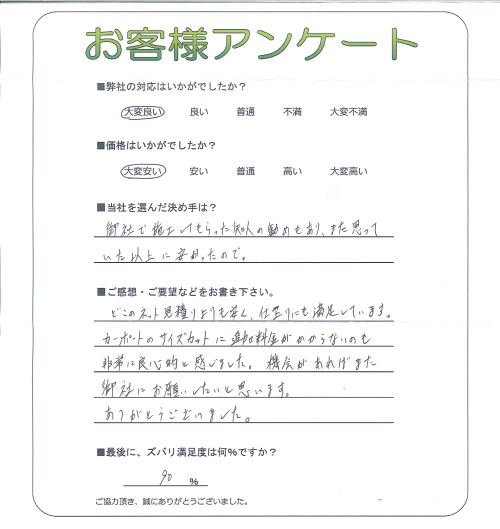 お客様アンケート
■弊社の対応はいかがでしたか？
大変良い 良い 普通 不満 大変不満
■価格はいかがでしたか？
大変安い 安い 普通 高い 大変高い
■当社を選んだ決め手は？
御社で施工してもらった知人の勧めもあり、また思って
いた以上に安かったので。
■ご感想・ご要望などをお書き下さい。
どこのネット見積りよりも安く、仕上りにも満足しています。
カーポートのサイズカットに追加料金がかからないのも
非常に良心的と感じました。機会があればまた
御社にお願いしたいと思います。
ありがとうございました。
■最後に、ズバリ満足度は何%ですか？
90 %
ご協力頂き、誠にありがとうございました。